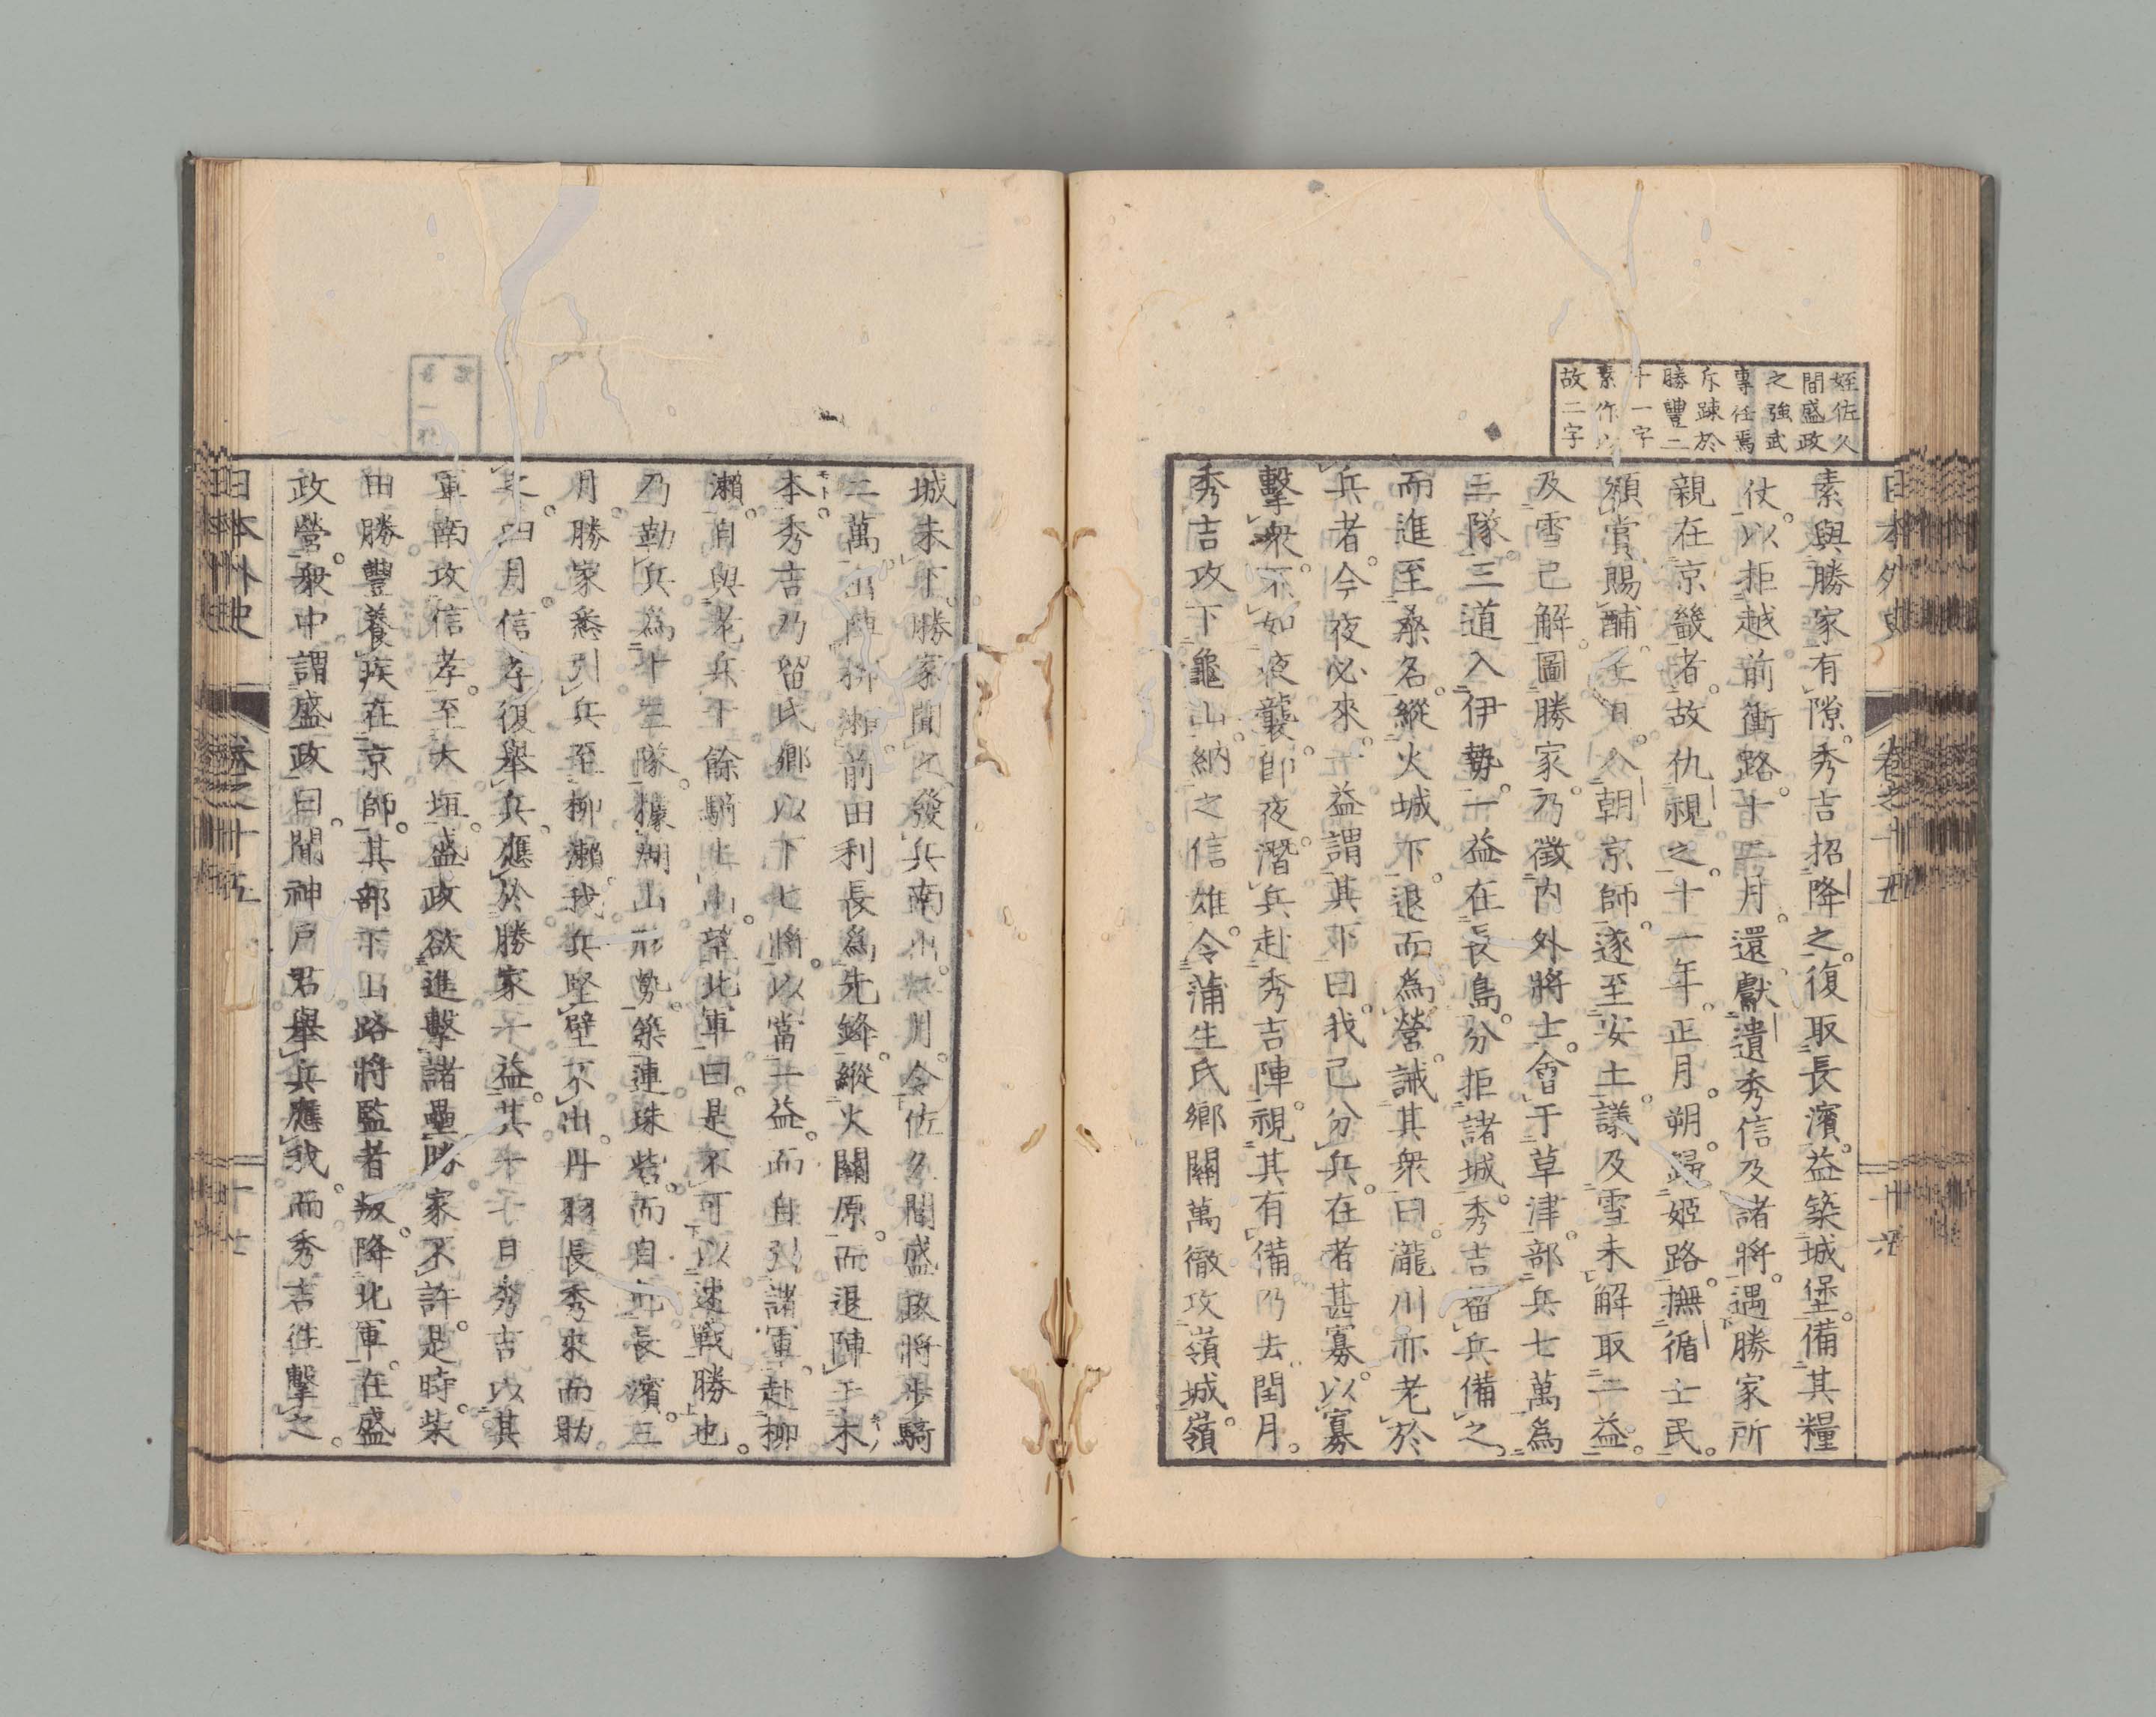 姪佐久
間盛政
之強武
專任焉
斥踈於
勝豐二
十一字
素作以
故二字
日本外史 卷之十五
素與勝家有隙。秀吉招降之。復取長濱。益築城堡。備其糧
仗。以拒越前衝路。十二月。還獻遺秀信及諸將。遇勝家所
親在京畿者。故仇視之。十一年。正月。朔。歸姬路。撫循士民。
頒賞賜酺。七日。入朝京師。遂至安土。議及雪未解取一益。
及雪已解。圖勝家。乃徵內外將士。會于草津。部兵七萬爲
三隊。三道入伊勢。一益在長島。分拒諸城。秀吉留兵備之。
而進至桑名。縱火城下。退而爲營。誡其衆曰。瀧川亦老於
兵者。今夜必來。一益謂其下曰。我已分兵。在者甚寡。以寡
擊衆。不如夜襲。卽夜潛兵赴秀吉陣。視其有備乃去。閏月。
秀吉攻下龜山。納之信雄。令蒲生氏鄉關萬徹攻嶺城。嶺
城未下。勝家聞之。發兵南出。三月。令佐久間盛政將步騎
二萬。出陣柳瀨。前田利長爲先鋒。縱火關原。而退陣于木
本。秀吉乃留氏鄉以下七將。以當一益。而自引諸軍。赴柳
瀨。自與花兵十餘騎上山。望北軍曰。是不可以速戰勝也。
乃勒兵爲十三隊。據湖山形勢。築連珠砦。而自屯長濱。三
月。勝家悉引兵至柳瀨。我兵堅壁不出。丹羽長秀來而助
之。四月。信孝復舉兵。應於勝家一益。其十七日。秀吉以其
軍南攻信孝。至大垣。盛政欲進擊諸壘。勝家不許。是時。柴
田勝豐養疾在京師。其部下山路將監者叛降北軍。在盛
政營。衆中謂盛政曰。聞神戶君舉兵應我。而秀吉往擊之。
日本外史 卷之十五 二十七